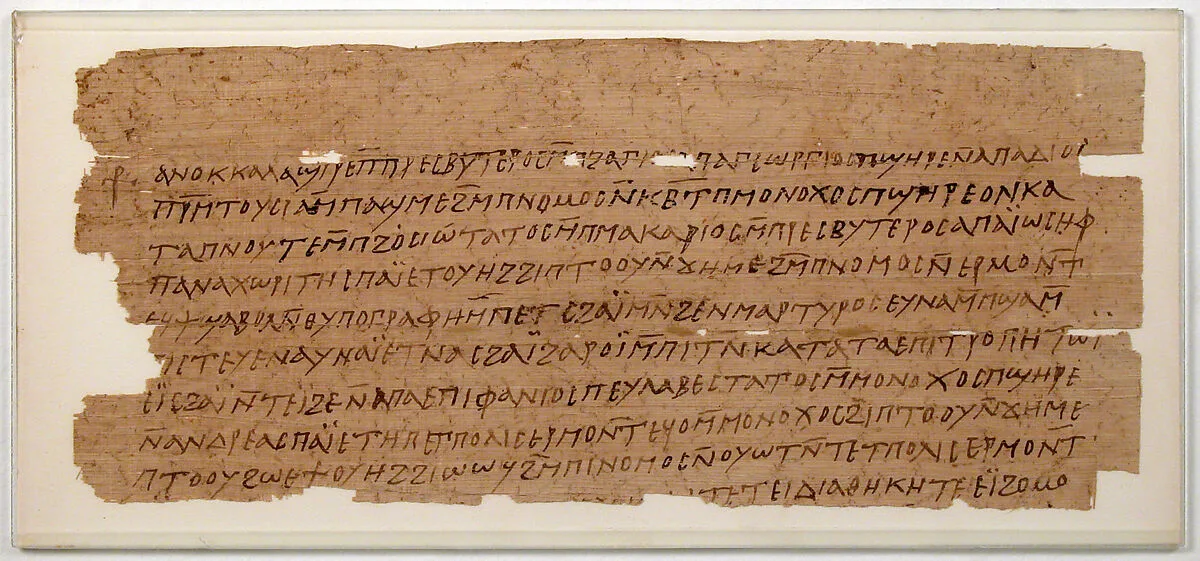 ⲁⲛⲟⲕ ⲕⲁⲗⲁⲱ ⲡⲣⲉⲙⲡ ⲡⲣⲉⲥⲃⲩⲧⲉⲣⲟⲥ ⲙⲡϩⲁⲅⲓⲟⲥ ⲁⲡⲁ ⲅⲓⲱⲣⲅⲓⲟⲥ ⲡϣⲏⲣⲉ ⲛⲁⲡⲁ ⲇⲓⲟⲥ
ⲡⲣⲙⲧⲟⲩⲥⲓⲁ ⲙⲡⲁϣⲙⲉ ϩⲙ ⲡⲛⲟⲙⲟⲥ ⲛⲕⲃⲧ ⲡⲙⲟⲛⲟⲭⲟⲥ ⲡϣⲏⲣⲉ ⲟⲛ ⲕⲁ
ⲧⲁ ⲡⲛⲟⲩⲧⲉ ⲙⲡϩⲟⲥⲓⲱⲧⲁⲧⲟⲥ ⲙⲡⲙⲁⲕⲁⲣⲓⲟⲥ ⲙⲡⲣⲉⲥⲃⲩⲧⲉⲣⲟⲥ ⲁⲡⲁ ⲓⲱⲥⲏⲫ
ⲡⲁⲛⲁⲭⲱⲣⲓⲧⲏⲥ ⲡⲁⲓ ⲉⲧⲟⲩⲏϩ ϩⲓ ⲡⲧⲟⲟⲩ ⲛϫⲏⲙⲉ ϩⲙ ⲡⲛⲟⲙⲟⲥ ⲛⲉⲣⲙⲟⲛⲧ
ϩⲩⲡⲟⲅⲣⲁⲫⲏ ⲙⲡⲉⲧⲥϩⲁⲓ ⲙⲛ ϩⲉⲛⲙⲁⲣⲧⲩⲣⲟⲥ ⲉⲩⲛⲁⲙⲡϣⲁ ⲙ
ⲡⲓⲥⲧⲉⲩⲉ ⲛⲁⲩ ⲛⲁⲓ ⲉⲧⲛⲁⲥϩⲁⲓ ϩⲁⲣⲟⲓ ⲙⲡⲓⲧⲛ ⲕⲁⲧⲁ ⲧⲁⲉⲡⲓⲧⲣⲟⲡⲏ ⲧⲱⲓ
ⲉⲓⲥϩⲁⲓ ⲛⲧⲉⲓϩⲉ ⲛⲁⲡⲁ ⲉⲡⲓⲫⲁⲛⲓⲟⲥ ⲡⲉⲩⲗⲁⲃⲉⲥⲧⲁⲧⲟⲥ ⲙⲙⲟⲛⲟⲭⲟⲥ ⲡϣⲏⲣⲉ
ⲛⲁⲛⲇⲣⲉⲁⲥ ⲡⲁⲓ ⲉⲧⲏⲡ ⲉⲧⲡⲟⲗⲓⲥ ⲉⲣⲙⲟⲛⲧ ⲉϥⲟ ⲙⲙⲟⲛⲟⲭⲟⲥ ϩⲓ ⲡⲧⲟⲟⲩ ⲛϫⲏⲙⲉ
ⲡⲧⲟⲟⲩ ϩⲱⲱϥ ⲟⲩⲏϩ ϩⲓⲱⲱϥ ϩⲙ ⲡⲓⲛⲟⲙⲟⲥ ⲛⲟⲩⲱⲧ ⲛⲧⲉ ⲧⲡⲟⲗⲓⲥ ⲉⲣⲙⲟⲛⲧ
ⲧⲉ ⲧⲉⲓⲇⲓⲁⲑⲏⲕⲏ ⲧⲉ ⲉⲓϩⲟⲙⲟ